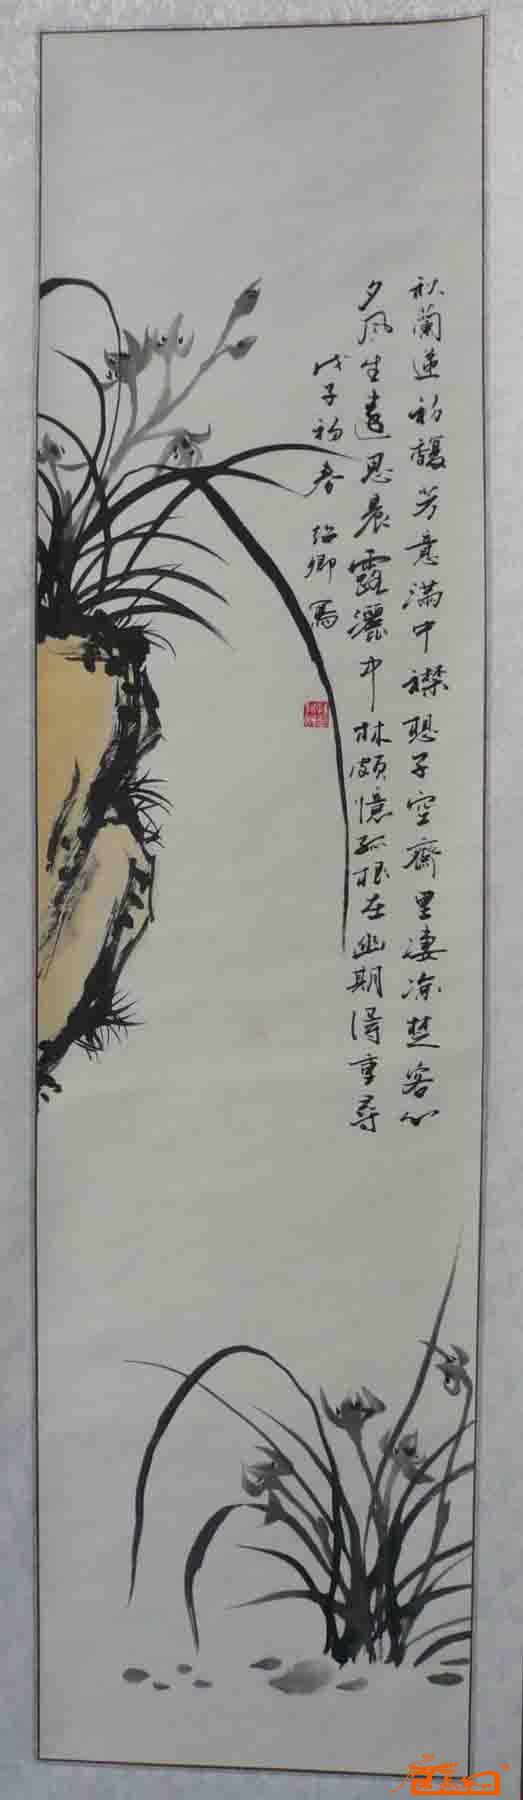 秋蘭遞初馥芳意滿中襟想子空齋里凄凉楚客心
夕風生遠思晨露灑中林頗憶孤根在幽期得重尋
戊子初春 绍卿寫